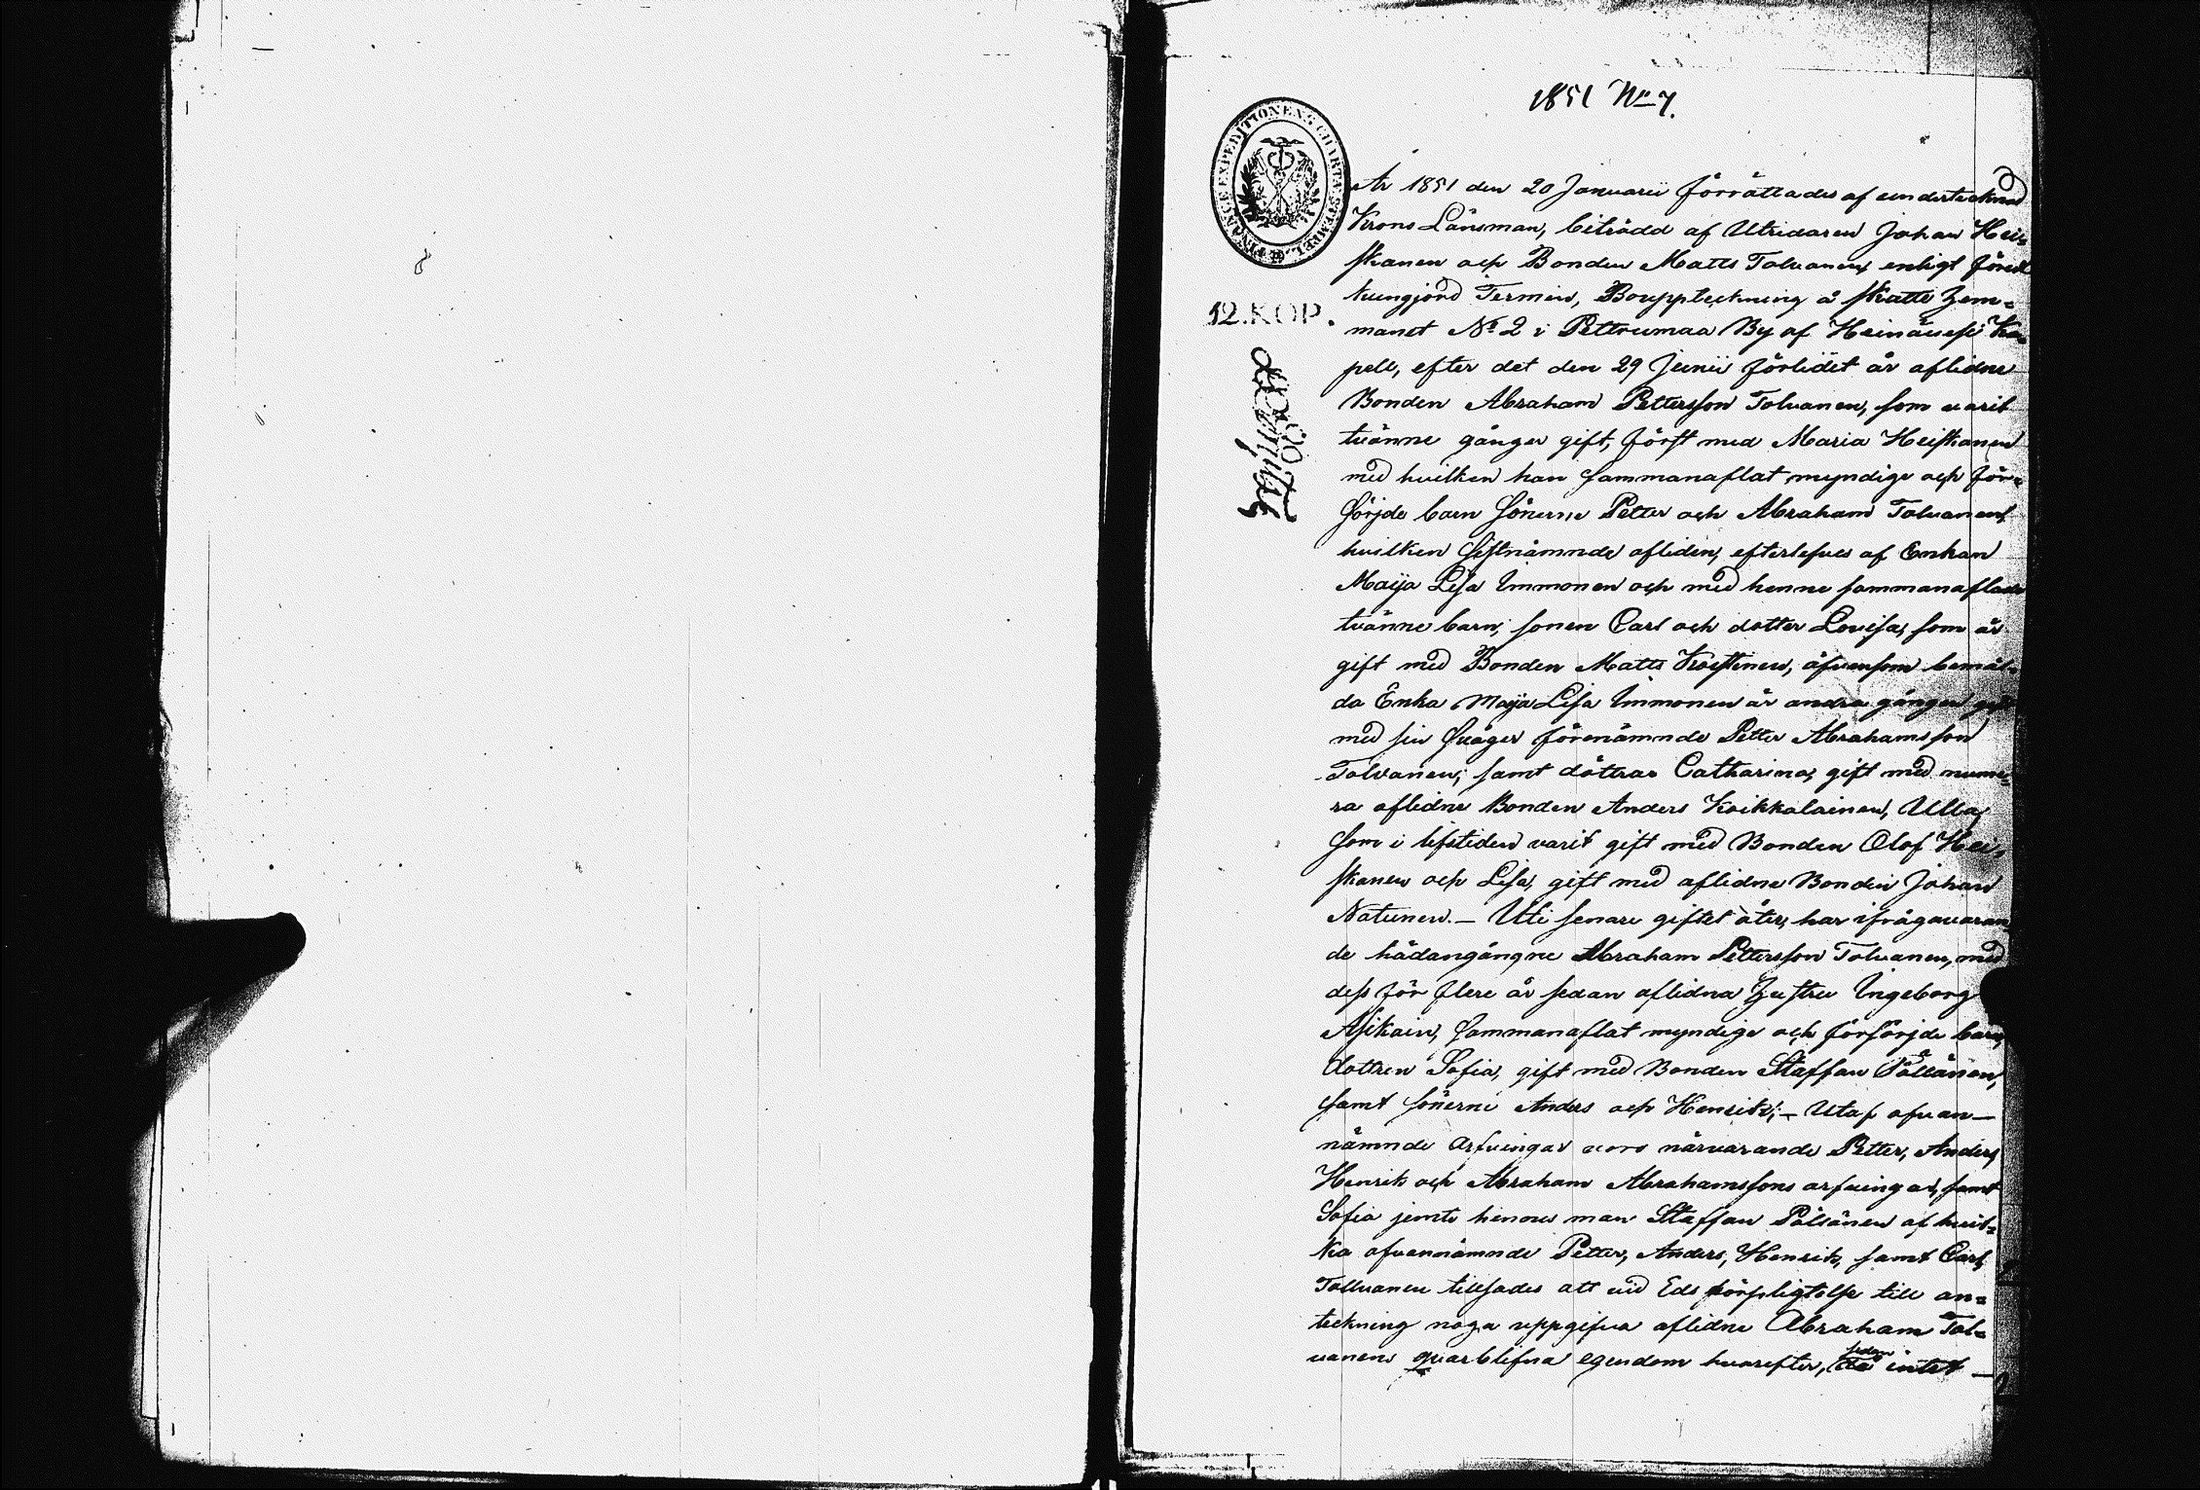 1851 No 7.
FINANCE EXPEDITIONENS CHARTÆ STEMPEL
12. KOP.
År 1851 den 20 Januarii förrättades af undertecknad
Krono Länsman, biträdd af Utridaren Johan Hei=
skanen och Bonden Matts Tolvanen, enligt förut
kungjord Termin, Bouppteckning å skatte Hem=
manet No 2 i Pettrumaa By af Heinävesi Ka=
pell, efter det den 29 Junii förlidet år aflidne
Bonden Abraham Pettersson Tolvanen, som varit
tvänne gånger gift, först med Maria Heiskanen
med hvilken han sammanaflat myndige och för=
sörjde barn sönerne Petter och Abraham Tolvanen,
hvilken sistnämnde afliden, efterlefves af Enkan
Maija Lisa Immonen och med henne sammanaflade
tvänne barn, sonen Carl och dotter Lovisa, som är
gift med Bonden Matts, äfvensom bemäl=
da Enka Maija Lisa Immonen är andra gången gift
med sin Svåger förenämnde Petter Abrahamsson
Tolvanen; samt döttrar Catharina, gift med nume=
ra aflidne Bonden Anders Koikkalainen, Ulla,
som i lifstiden varit gift med Bonden Olof Hei=
skanen och Lisa, gift med aflidne Bonden Johan
Natunen. – Uti senare giftet åter, har ifrågavaran=
de hädangångne Abraham Pettersson Tolvanen, med
dess för flere år sedan aflidna Hustru Ingeborg
Asikain, sammanaflat myndige och försörjde barn,
dottren Sofia, gift med Bonden Staffan Pölläinen,
samt sönerne Anders och Henrik; – Utaf ofvan–
nämnde arfvingar voro närvarande Petter, Anders,
Henrik och Abraham Abrahamssons arfvingar, samt
Sofia jemte hennes man Staffan af hvil=
ka ofvannämnde Petter, Anders, Henrik, samt Carl
Tolvanen tillsades att vid Eds förpligtelse till an=
teckning noga uppgifva aflidne Abraham Tol=
vanens qvarblifna egendom hvarefter, sedan intet –